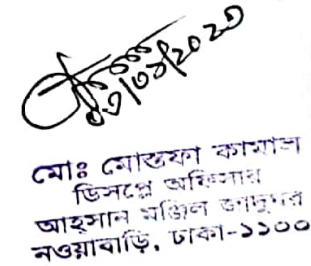 ০৩/০৪/২০২৩
মোঃ মোস্তফা কামাল
ডিসপ্লে অফিসার
আহসান মঞ্জিল জাদুঘর
নওয়াবাড়ি, ঢাকা-১১০০